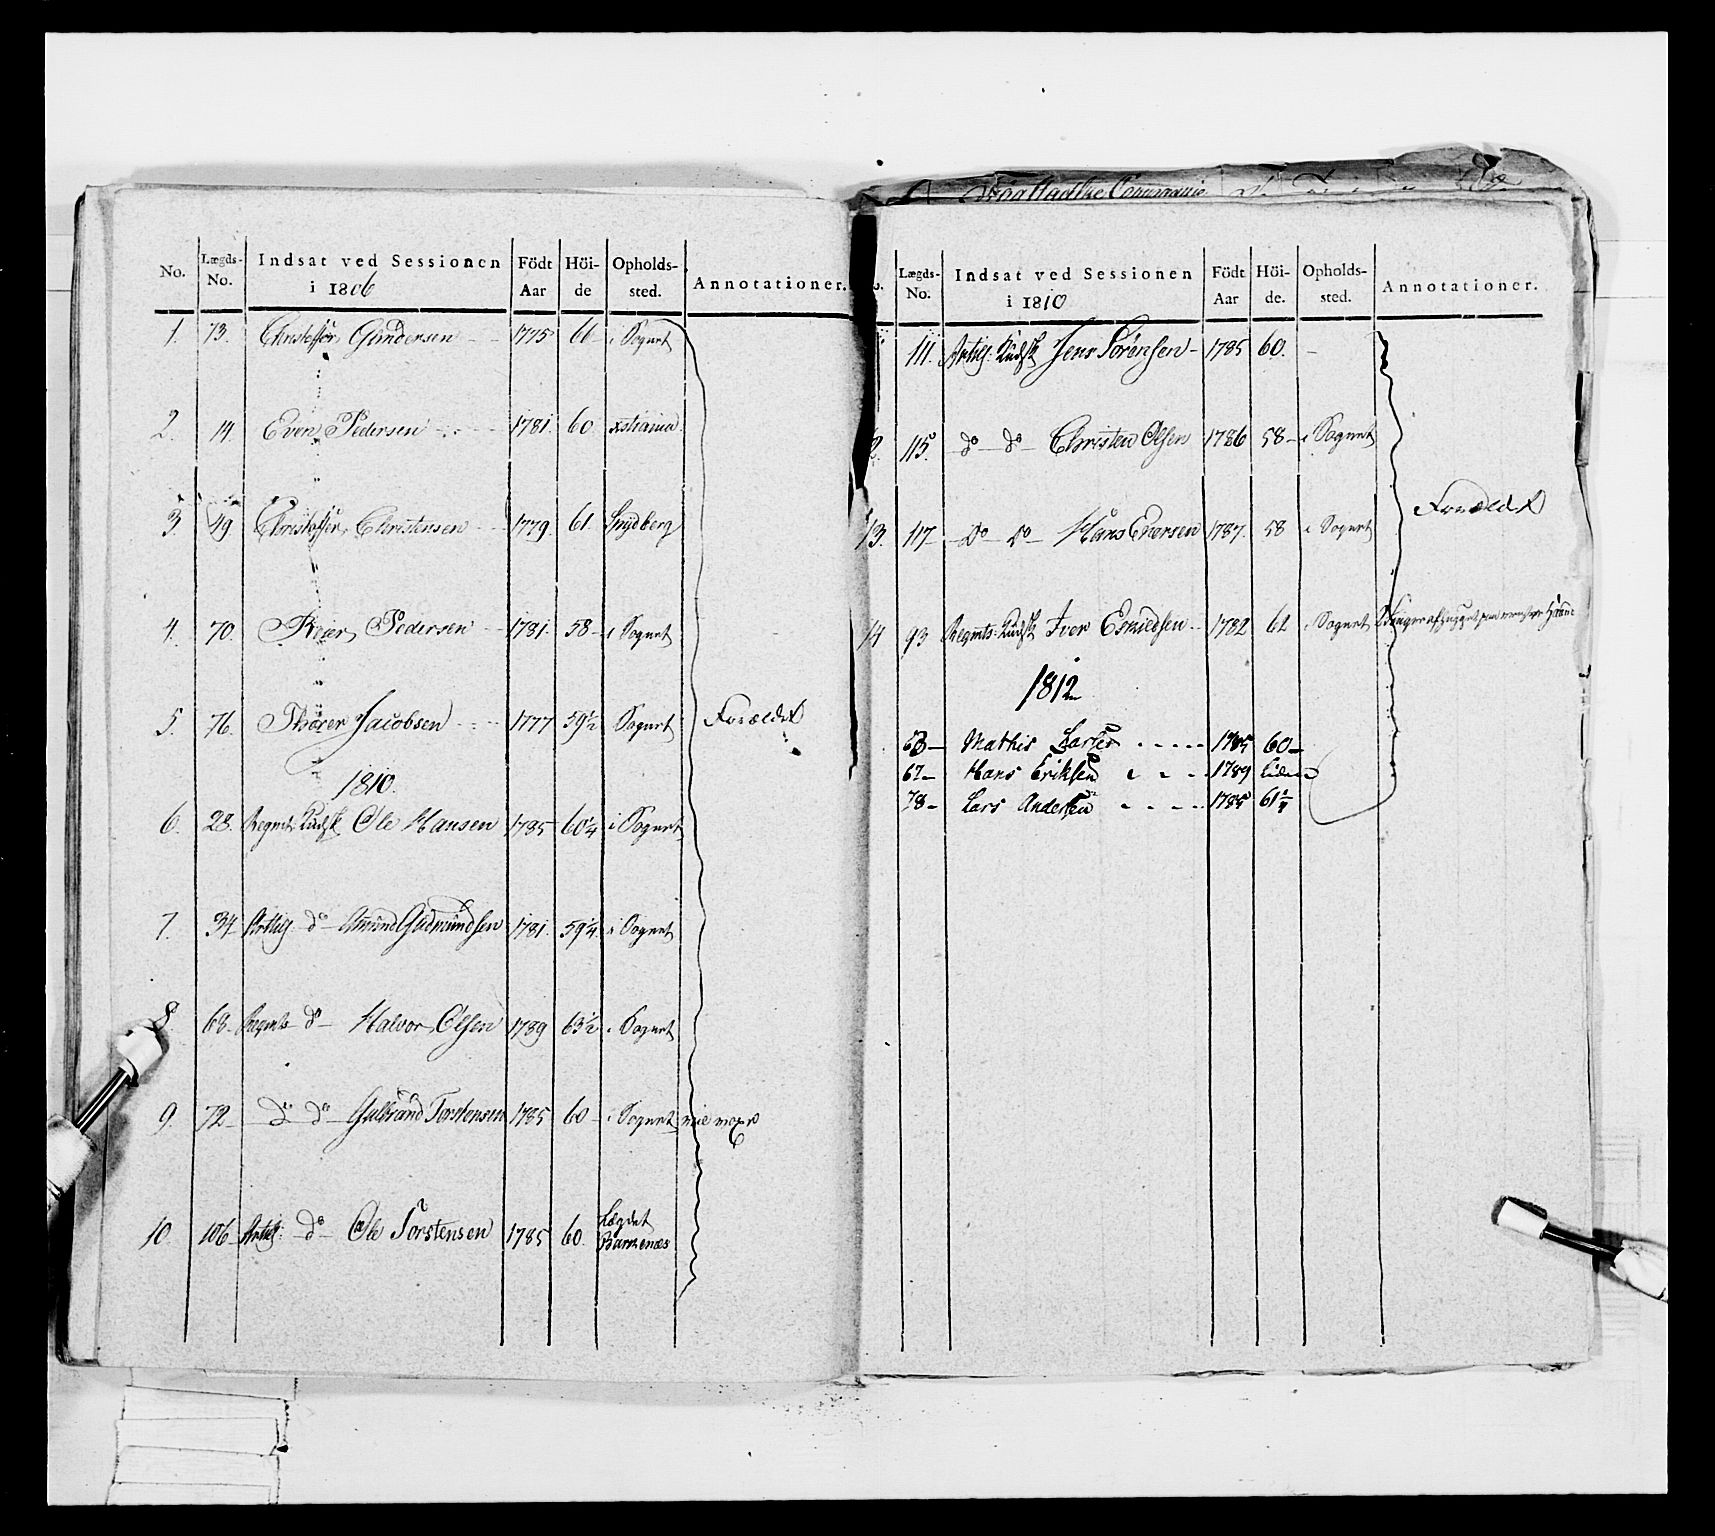 No. Lægds-No. Indsat ved Sessionen i 1806 Födt Aar Höi-de Opholds-sted. Annotationer.
1. 13. Christoffer Gundersen 1775 66 i Sognet
2. 14 Even Pedersen 1781. 60 xstiania
3. 49. Christoffer Christensen 1779. 61. Spydberg
4. 70. Peder Pedersen 1781. 58 i Sognet
5. 76. Thorer Jacobsen 1777 59½ Sognet Forældet
1810.
6. 28. Regmts Kudsk Ole Hansen 1785 60¼ i Sognet
7. 34 Artilj. do Amund Gudmundsen 1781. 59¼ i Sognet
8. 68 Regmts do Halvor Olsen 1789 63½ i Sognet
9. 72 do do Gulbrand Torstensen 1785 60 i Sognet
10. 106 Artilj: do Ole Torstensen 1785 60. Lægdet
Barnenæs
Compagnie
Lægds-No. Indsat ved Sessionen i 1810 Födt Aar Höi-de. Opholds-sted. Annotationer.
111. Artilj: Kudsk Jens Sørensen 1785 60. –
2. 115. do do Christen Olsen 1786 58 i Sognet
Forældet
13. 117 do do Hans Evensen 1787. 58 i Sognet
14 93 Regmts: Kudsk Iver Esmiedsen 1782 62 i Sognet
1812
63 Mathis Larsen 1785 60
67 Hans Eriksen 1789 Liden
78 Lars Andersen 1785 61¼